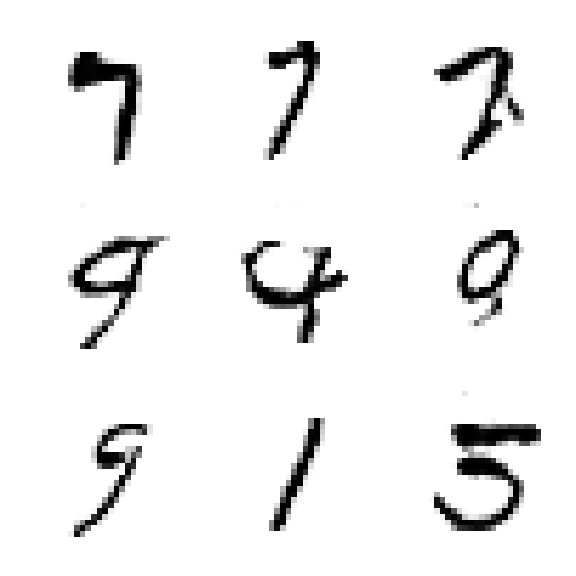 7 7 7
9 4 9
9 1 5